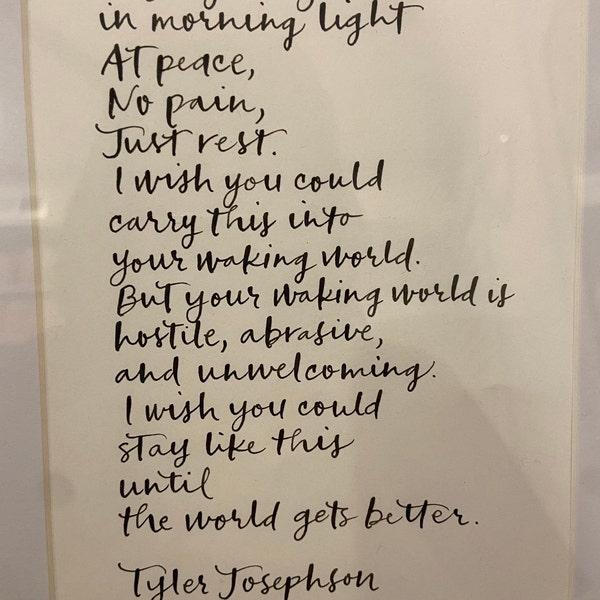 in morning light
At peace,
No pain,
Just rest.
I wish you could
carry this into
your waking world.
But your waking world is
hostile, abrasive,
and unwelcoming.
I wish you could
stay like this
until
the world gets better.
Tyler Josephson